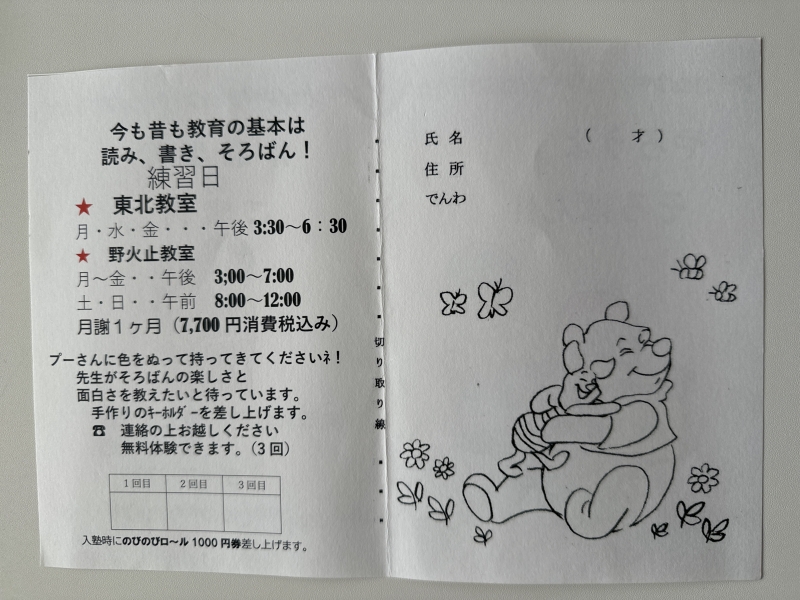 今も昔も教育の基本は
読み、書き、そろばん！
練習日
★ 東北教室
月・水・金・・・午後 3:30～6：30
★ 野火止教室
月～金・・午後 3;00～7:00
土・日・・午前 8:00～12:00
月謝１ヶ月（7,700 円消費税込み）
プーさんに色をぬって持ってきてくださいﾈ！
先生がそろばんの楽しさと
面白さを教えたいと待っています。
手作りのｷｰﾎﾙﾀﾞｰを差し上げます。
☎ 連絡の上お越しください
無料体験できます。（3 回）
1 回目 2 回目 3 回目
入塾時にのびのびロ～ル 1000 円券差し上げます。
切り取り線
氏 名 （ 才 ）
住 所
でんわ